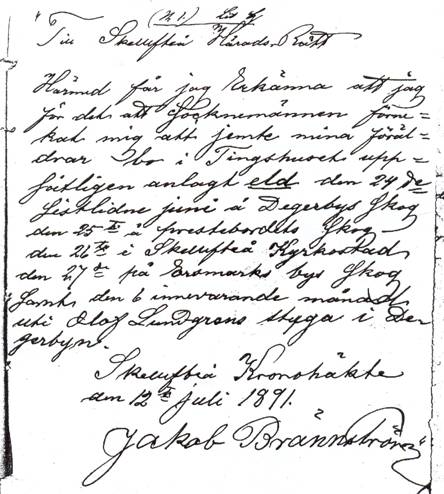 (N 1.) Lit
Till Skellefteå Härads-Rätt
Härmed får jag Erkänna att jag
för det att Sogknemännen förne-
kat mig att jemte mina föräl-
drar bo i Tingshuset upp-
såtligen anlagt eld den 24 de
Sistlidne juni å Degerbys Skog
den 25 å prestebordets Skog
den 26 te i Skellefteå Kyrkostad
den 27 de på Ersmarks bys Skog
Samt den 6 innevarande månad
uti Olof Lundgrens styga i De-
gerbyn.
Skellefteå Kronohäkte
den 12 Juli 1891.
Jakob Brännström